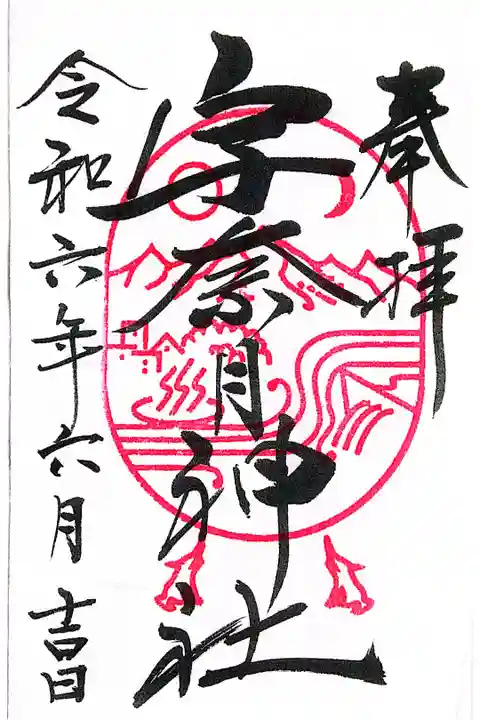 奉拝
宇奈月神社
令和六年六月吉日